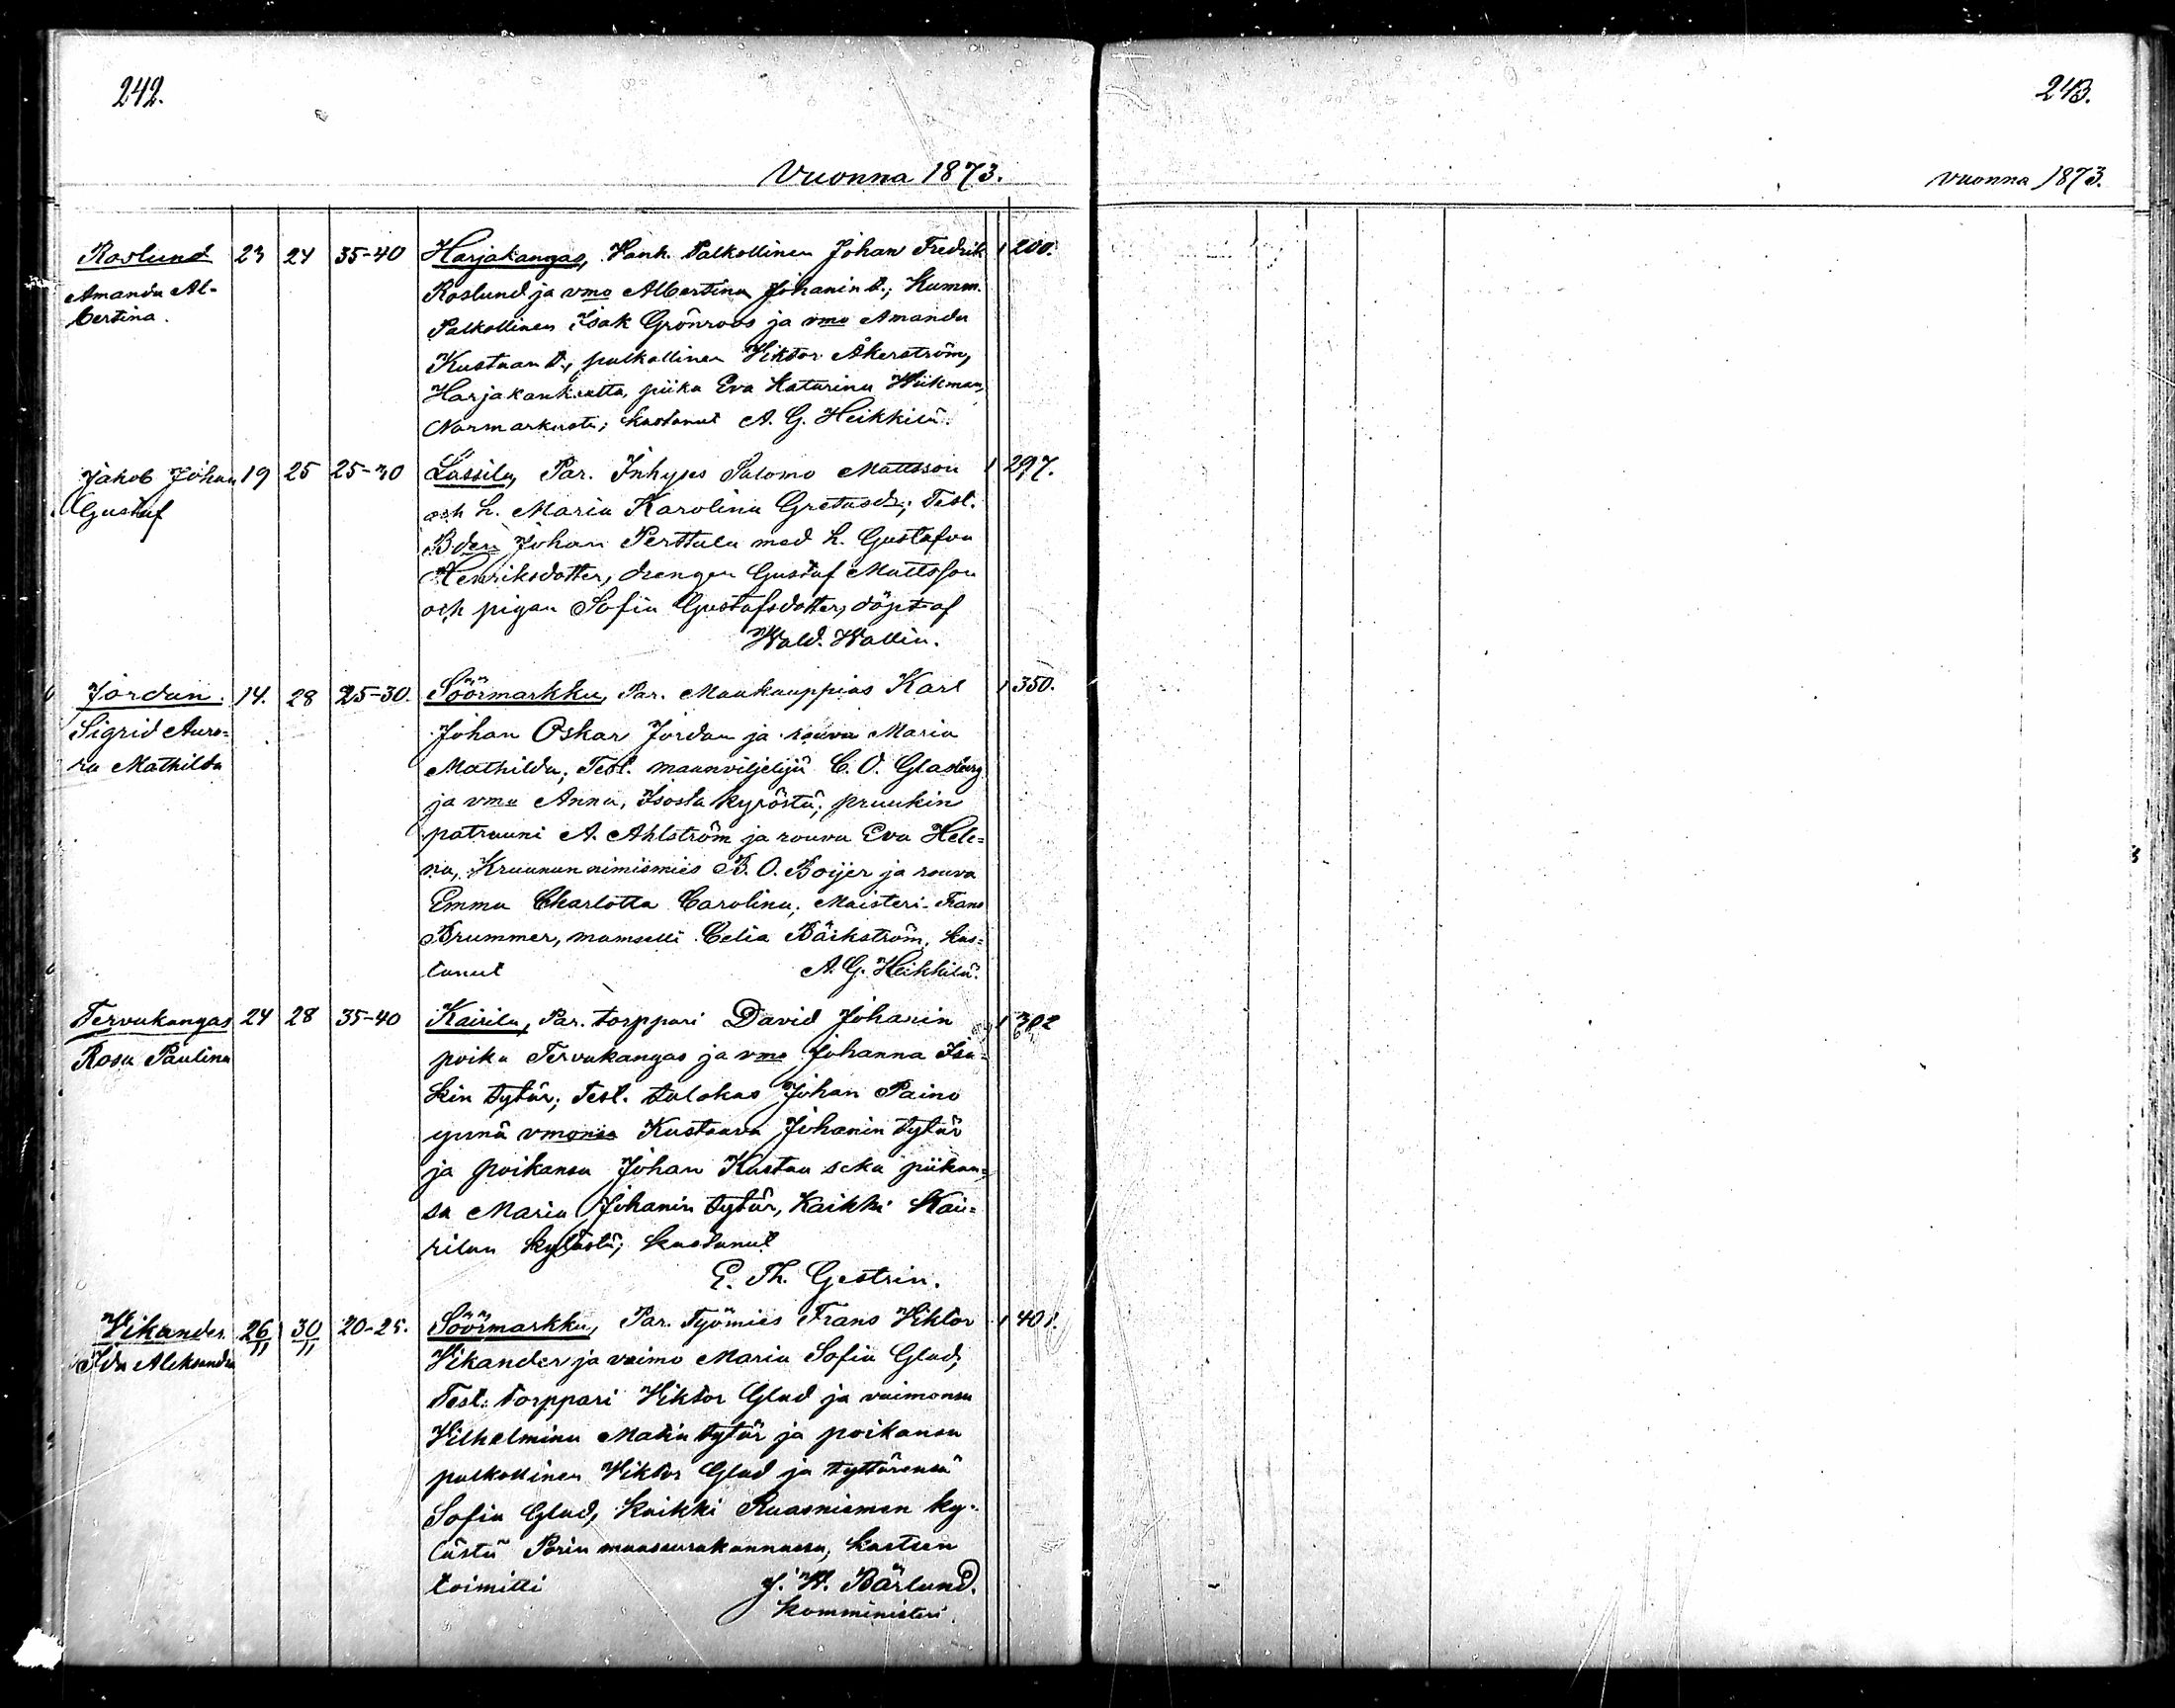 242.
243.
Vuonna 1873.
Vuonna 1873.
Roslund 23 24 35-40 Harjakangas, Vank. Palkollinen Johan Fredrik 1 200.
Amanda Al- Roslund ja vmo Albertina Johanin t.; Kumm.
bertina. Palkollinen Isak Grönroos ja vmo Amanda
Kustaan t., palkollinen Viktor Åkerström,
Harjakankaalta, piika Eva Katarina Wiikman,
Normarkusta; kastanut A. G. Heikkilä.
Jakob Johan 19 25 25-30 Lassila, Par. Inhyses Salomo Mattsson 1 297.
Gustaf och h. Maria Karolina Gretasdr; Test.
Bden Johan Perttula med h. Gustafva
Henriksdotter, drengen Gustaf Mattsson
och pigan Sofia Gustafsdotter, döpt af
Wald. Wallin.
Jordan. 14. 28 25-30. Söörmarkku, Par. Maakauppias Karl 1 350.
Sigrid Auro- Johan Oskar Jordan ja rouva Maria
ra Mathilda Mathilda; Test. maanviljelijä C. O. Glasberg
ja vma Anna, Isosta kyröstä; pruukin
patruuni A. Ahlström ja rouva Eva Hele-
na, Kruunun nimismies B. O. Boijer ja rouva
Emma Charlotta Carolina; Maisteri Frans
Brummer, mamselli Celia Bäckström, kas-
tanut A. G. Heikkilä.
Tervakangas 24 28 35-40 Kairila, Par. torppari David Johanin 1 302
Rosa Paulina poika Tervakangas ja vmo Johanna Isa-
kin tytär; Test. talokas Johan Paino
ynnä vmonsa Kustaava Johanin tytär
ja poikansa Johan Kustaa sekä piikan-
sa Maria Johanin tytär, Kaikki Kai-
rilan kylästä; kastanut
E. Th. Gestrin.
Vikander 26/11 30/11 20-25. Söörmarkku, Par. Työmies Frans Viktor 1 401.
Ida Aleksandra Vikander ja vaimo Maria Sofia Glad;
Test. torppari Viktor Glad ja vaimonsa
Vilhelmina Matin tytär ja poikansa
palkollinen Viktor Glad ja tyttärensä
Sofia Glad, kaikki Ruosniemen ky-
lästä Porin maaseurakunnassa, kasteen
toimitti J. W. Bärlund.
komministeri.